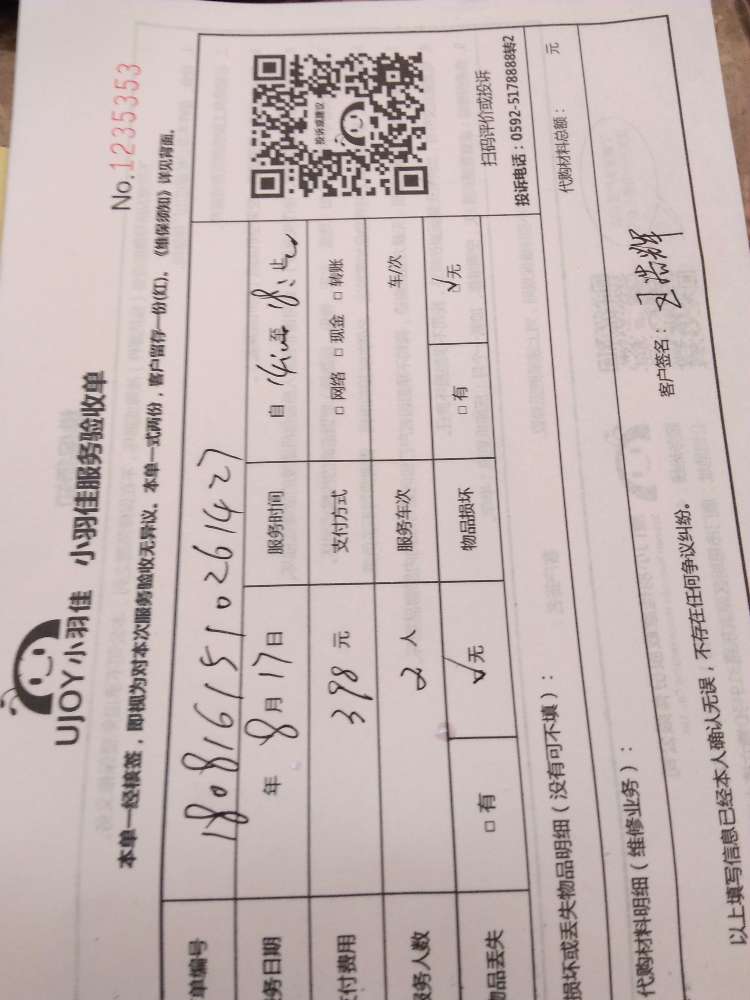 UJOY小羽佳 小羽佳服务验收单
No.1235353
本单一经核签，即视为对本次服务验收无异议。本单一式两份，客户留存一份(红)。《维保须知》详见背面。
单编号 180816151026142
务日期 年 8月17日 服务时间 自 至
付费用 398 元 支付方式 □ 网络 □ 现金 □ 转账
服务人数 2 人 服务车次 车/次
物品丢失 □ 有 √无 物品损坏 □ 有 √无
投诉或建议
扫码评价或投诉
投诉电话：0592-5178888转2
损坏或丢失物品明细（没有可不填）：
代购材料明细（维修业务）： 代购材料总额： 元
以上填写信息已经本人确认无误，不存在任何争议纠纷。 客户签名：